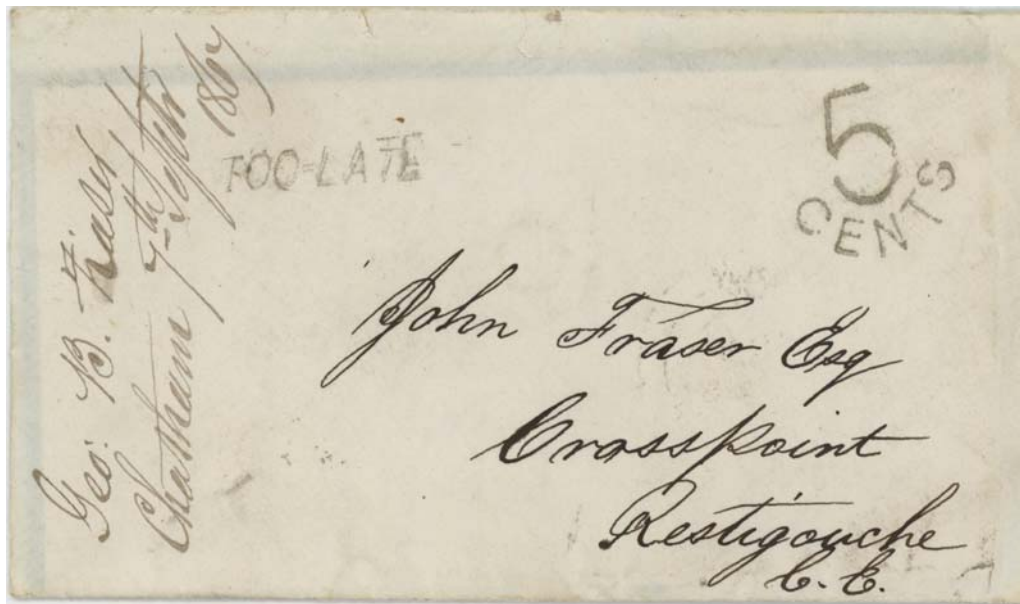 Geo: B. Fraser
Chatham 7th Septr 1867
TOO-LATE
5
CENTS
John Fraser Esq
Crosspoint
Restigouche
C.E.